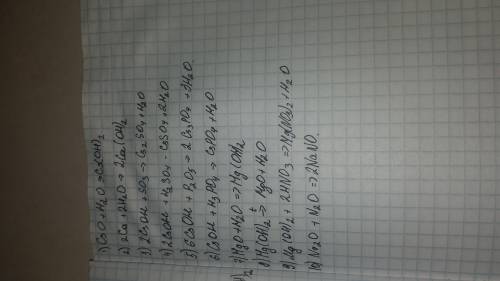 1) CsO + H2O => Cs(OH)2
2) 2Ca + 2H2O -> 2Ca(OH)2
3) 2CsOH + SO3 -> Cs2SO4 + H2O
4) 2CsOH + H2SO4 - CsSO4 + 2H2O
5) 6CsOH + P2O5 -> 2Cs3PO4 + 3H2O
6) CsOH + H3PO4 -> CsPO4 + H2O
7) MgO + H2O => Mg(OH)2
8) Mg(OH)2 t-> MgO + H2O
9) Mg(OH)2 + 2HNO3 => Mg(NO3)2 + H2O
10) Na2O + N2O => 2NaNO.